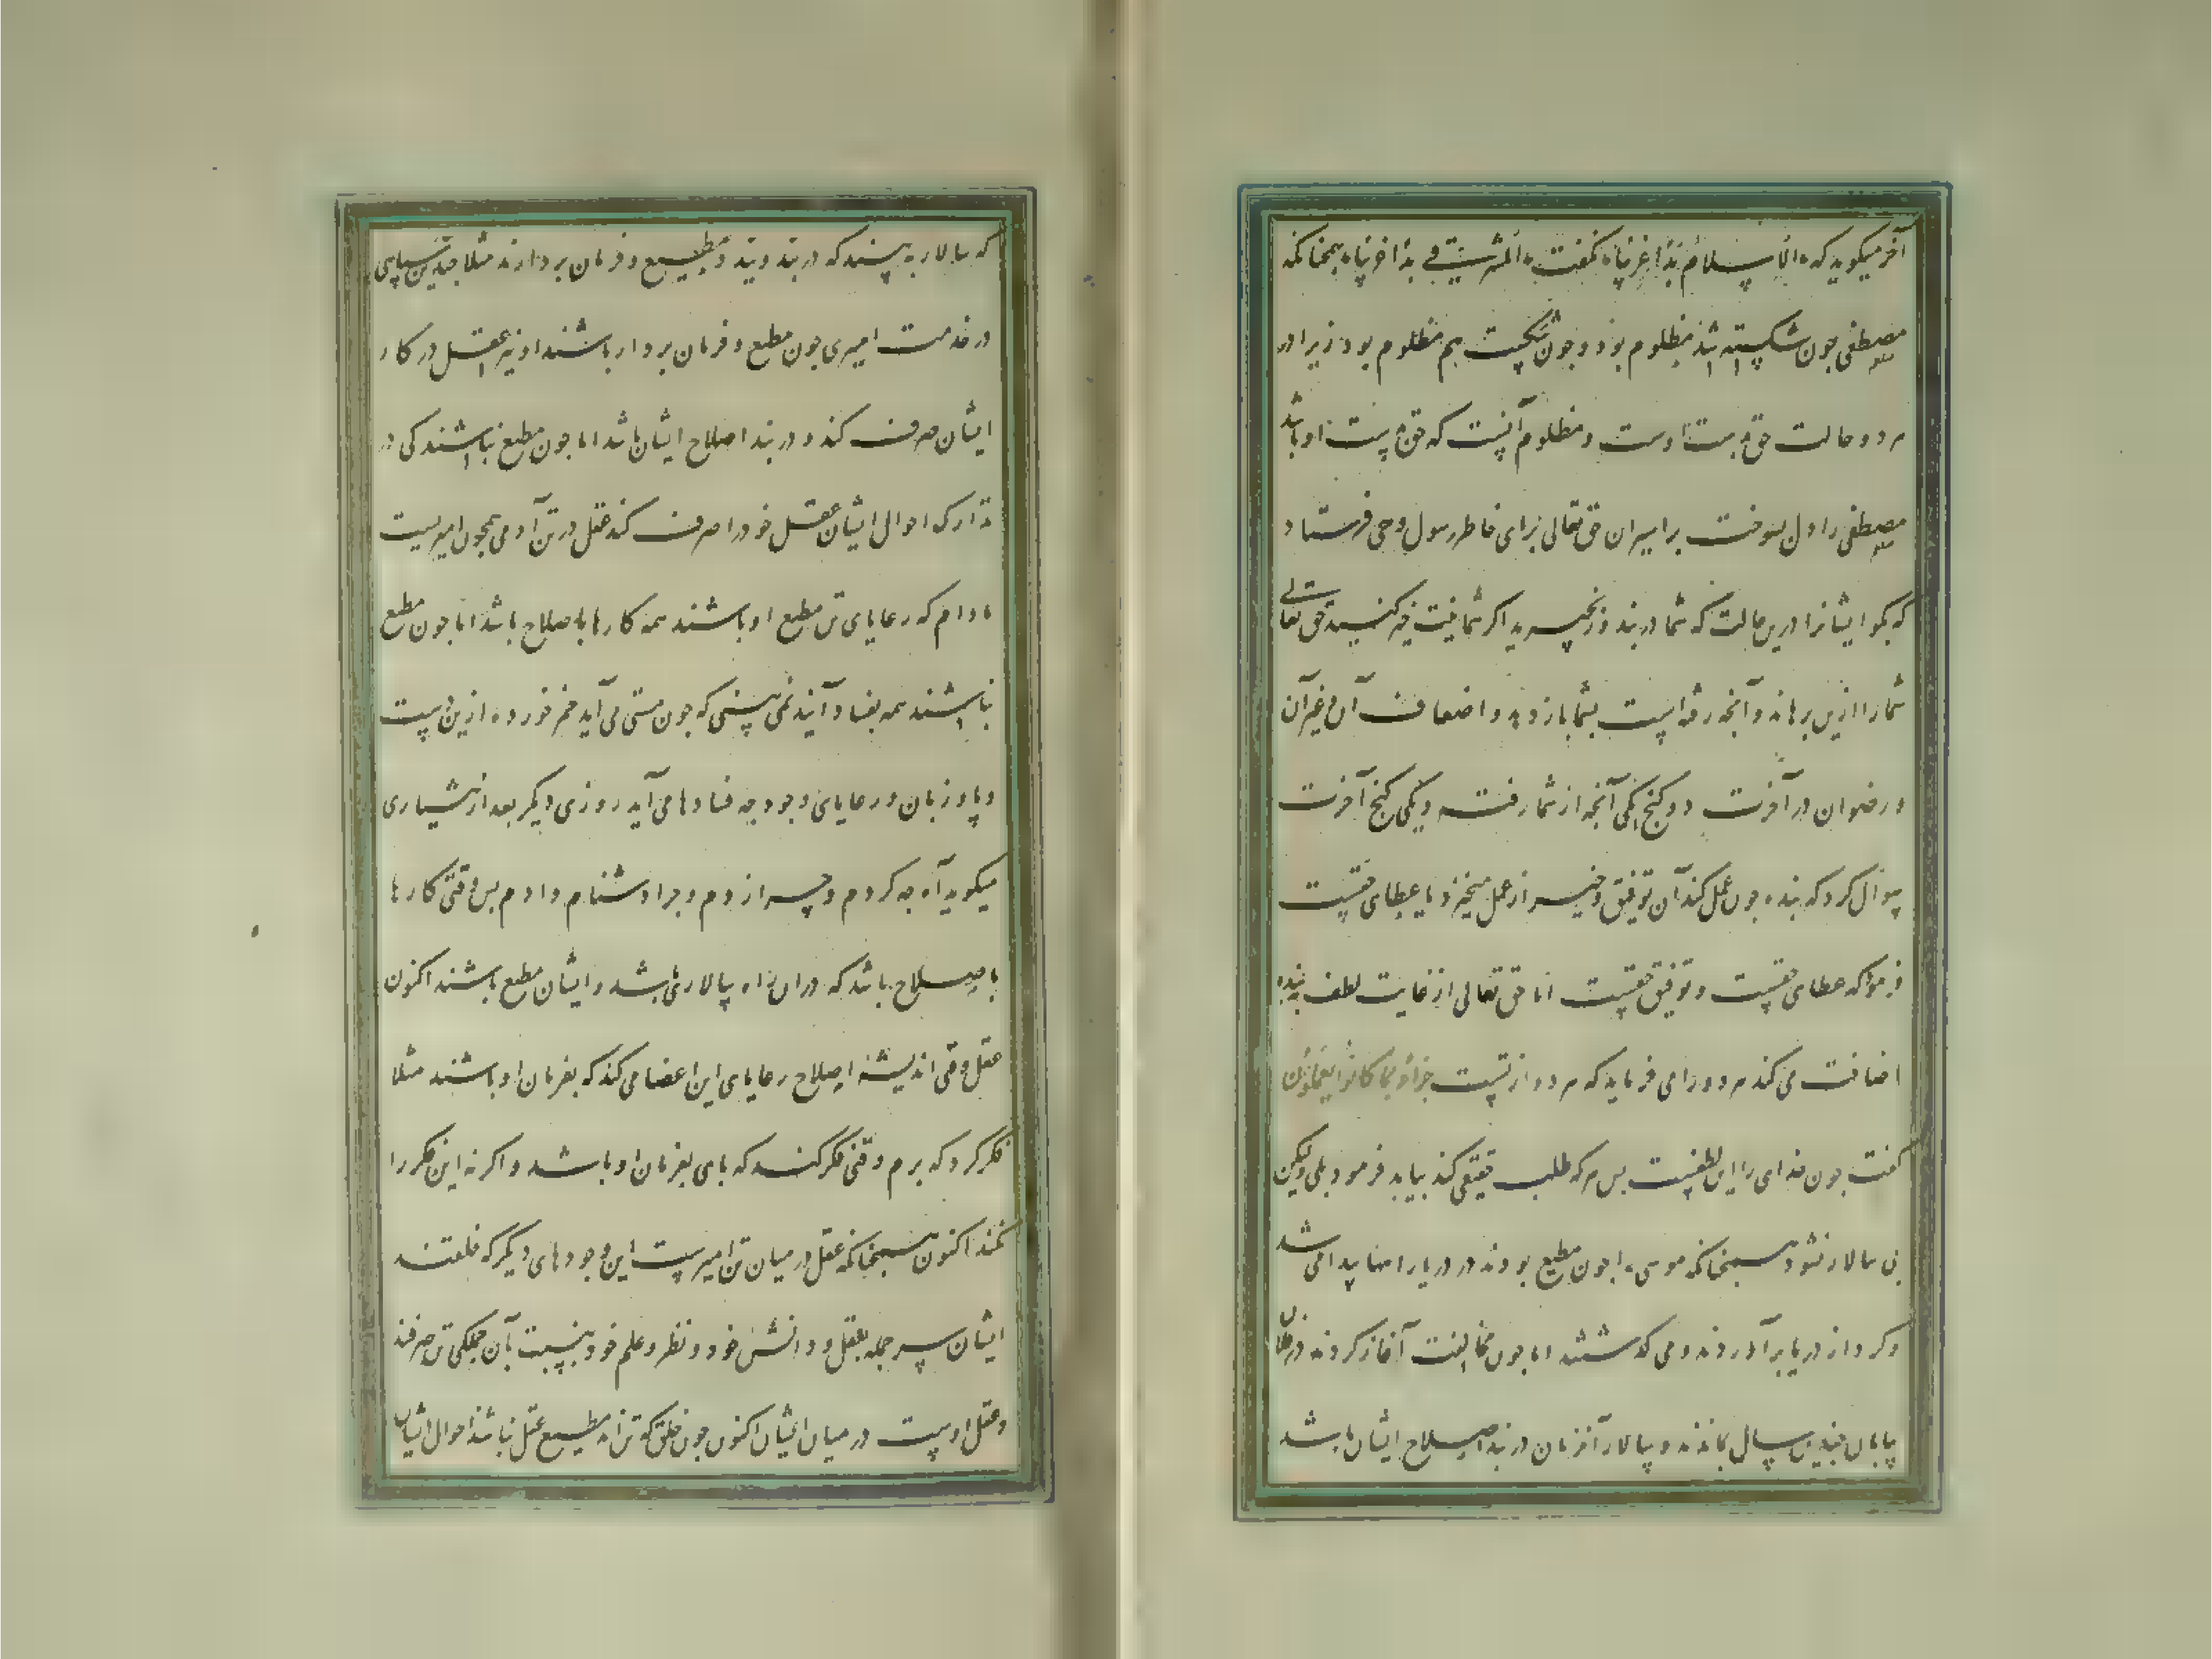 آخر میکوید که انا پسلام بذا غرنیاه نکفت المشرقی بذا خرنیاه همچنانکه
مصطفی جون شکسته شذ مظلوم بود و جون شکست هم مظلوم بود زیرا در
هر دو حالت حق بدست اوست و مظلوم آنست که حق بدست او باشد
مصطفی را دل بسوخت بر اسیران حق تعالی برای خاطر رسول وحی فرستاد
که بکو ایشانرا درین حالت که شما در بند و زنجیرید اکر شما نیت خیر کنید حق تعالی
شمارا ازین برهاند و آنجه رفته است بشما باز دهد و اضعاف آن و غیر آن
و رضوان در آخرت دو کنج یکی آنجه از شما رفت و یکی کنج آخرت
سؤال کرد که بنده جون عمل کند آن توفیق و خیر از عمل میخیزد یا عطای حقست
فرمود که عطای حقست و توفیق حقست اما حق تعالی از غایت لطف به بنده
اضافت می کند هر دو را می فرماید که هر دو از تست جزاءً بما کانوا یعملون
کفت جون خدای را این لطفست بس هر که طلب حقیقی کند بیابد فرمود بلی ولیکن
بی سالار نشود همچنانکه موسی را جون مطیع بودند در دریا راهها پیدا می شد
و کرد از دریا بر آوردند و می کذشتند اما جون مخالفت آغاز کردند در فلان
بیابان جندین سال بماندند و سالار آنزمان در بند اصلاح ایشان باشد
که سالار به بیند که در بند ویند و مطیع و فرمان بردارند مثلا جندین سپاهی
در خدمت امیری جون مطیع و فرمان بردار باشند او نیز عقل در کار
ایشان صرف کند و در بند اصلاح ایشان باشد اما جون مطیع نباشند کی در
تدارک احوال ایشان عقل خود را صرف کند عقل در تن آدمی همجون امیریست
مادام که رعایای تن مطیع او باشند همه کارها باصلاح باشد اما جون مطیع
نباشند همه بفساد آیند نمی بینی که جون مستی می آید خمر خورده ازین دست
و پا و زبان و رعایای وجود جه فسادها می آید روزی دیکر بعد از هشیاری
میکوید آه جه کردم و جرا زدم و جرا دشنام دادم بس وقتی کارها
باصلاح باشد که در آن ده سالاری باشد و ایشان مطیع باشند اکنون
عقل وقتی اندیشهٔ اصلاح رعایای این اعضا می کند که بفرمان او باشند مثلا
فکر کرد که بروم وقتی فکر کند که بای بفرمان او باشد و اکر نه این فکر را
نکند اکنون همچنانکه عقل در میان تن امیرست این وجودهای دیکر که خلقند
ایشان سر جمله بعقل و دانش خود و نظر و علم خود بنسبت بآن جملکی تن صرفند
و عقل اوست در میان ایشان اکنون جون خلق که تن اند مطیع عقل نباشند احوال ایشان